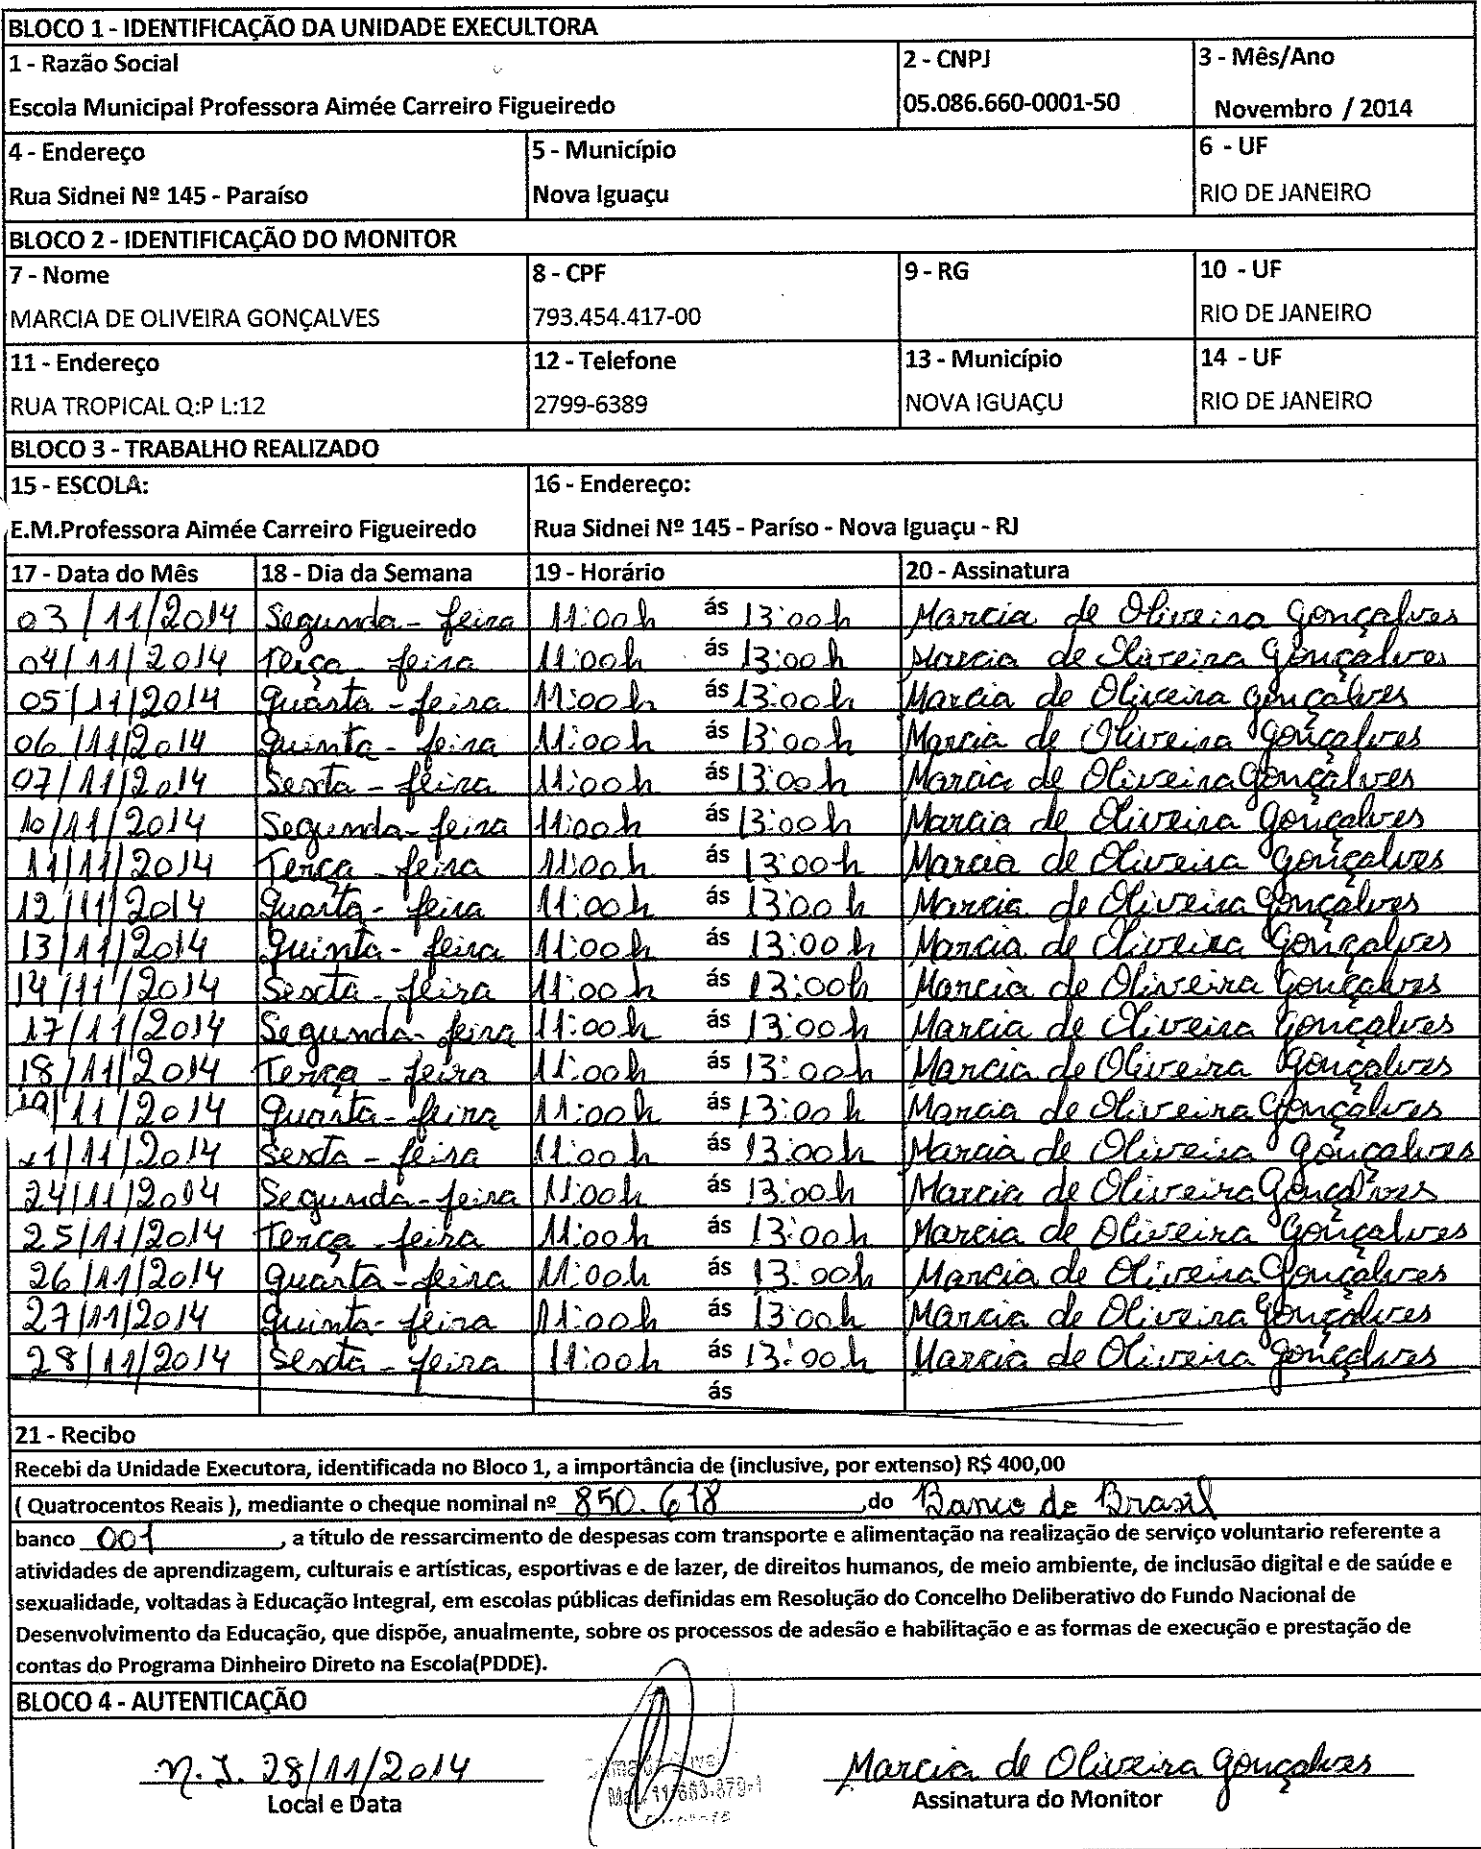 BLOCO 1 - IDENTIFICAÇÃO DA UNIDADE EXECULTORA
1 - Razão Social 2 - CNPJ 3 - Mês/Ano
Escola Municipal Professora Aimée Carreiro Figueiredo 05.086.660-0001-50 Novembro / 2014
4 - Endereço 5 - Município 6 - UF
Rua Sidnei Nº 145 - Paraíso Nova Iguaçu RIO DE JANEIRO
BLOCO 2 - IDENTIFICAÇÃO DO MONITOR
7 - Nome 8 - CPF 9 - RG 10 - UF
MARCIA DE OLIVEIRA GONÇALVES 793.454.417-00 RIO DE JANEIRO
11 - Endereço 12 - Telefone 13 - Município 14 - UF
RUA TROPICAL Q:P L:12 2799-6389 NOVA IGUAÇU RIO DE JANEIRO
BLOCO 3 - TRABALHO REALIZADO
15 - ESCOLA: 16 - Endereço:
E.M.Professora Aimée Carreiro Figueiredo Rua Sidnei Nº 145 - Paríso - Nova Iguaçu - RJ
17 - Data do Mês 18 - Dia da Semana 19 - Horário 20 - Assinatura
03/11/2014 Segunda-feira 11:00h ás 13:00h Marcia de Oliveira Gonçalves
04/11/2014 Terça-feira 11:00h ás 13:00h Marcia de Oliveira Gonçalves
05/11/2014 Quarta-feira 11:00h ás 13:00h Marcia de Oliveira Gonçalves
06/11/2014 Quinta-feira 11:00h ás 13:00h Marcia de Oliveira Gonçalves
07/11/2014 Sexta-feira 11:00h ás 13:00h Marcia de Oliveira Gonçalves
10/11/2014 Segunda-feira 11:00h ás 13:00h Marcia de Oliveira Gonçalves
11/11/2014 Terça-feira 11:00h ás 13:00h Marcia de Oliveira Gonçalves
12/11/2014 Quarta-feira 11:00h ás 13:00h Marcia de Oliveira Gonçalves
13/11/2014 Quinta-feira 11:00h ás 13:00h Marcia de Oliveira Gonçalves
14/11/2014 Sexta-feira 11:00h ás 13:00h Marcia de Oliveira Gonçalves
17/11/2014 Segunda-feira 11:00h ás 13:00h Marcia de Oliveira Gonçalves
18/11/2014 Terça-feira 11:00h ás 13:00h Marcia de Oliveira Gonçalves
19/11/2014 Quarta-feira 11:00h ás 13:00h Marcia de Oliveira Gonçalves
21/11/2014 Sexta-feira 11:00h ás 13:00h Marcia de Oliveira Gonçalves
24/11/2014 Segunda-feira 11:00h ás 13:00h Marcia de Oliveira Gonçalves
25/11/2014 Terça-feira 11:00h ás 13:00h Marcia de Oliveira Gonçalves
26/11/2014 Quarta-feira 11:00h ás 13:00h Marcia de Oliveira Gonçalves
27/11/2014 Quinta-feira 11:00h ás 13:00h Marcia de Oliveira Gonçalves
28/11/2014 Sexta-feira 11:00h ás 13:00h Marcia de Oliveira Gonçalves
ás
21 - Recibo
Recebi da Unidade Executora, identificada no Bloco 1, a importância de (inclusive, por extenso) R$ 400,00
( Quatrocentos Reais ), mediante o cheque nominal nº 850.618 ,do Banco do Brasil
banco 001 , a título de ressarcimento de despesas com transporte e alimentação na realização de serviço voluntario referente a
atividades de aprendizagem, culturais e artísticas, esportivas e de lazer, de direitos humanos, de meio ambiente, de inclusão digital e de saúde e
sexualidade, voltadas à Educação Integral, em escolas públicas definidas em Resolução do Concelho Deliberativo do Fundo Nacional de
Desenvolvimento da Educação, que dispõe, anualmente, sobre os processos de adesão e habilitação e as formas de execução e prestação de
contas do Programa Dinheiro Direto na Escola(PDDE).
BLOCO 4 - AUTENTICAÇÃO
N.I. 28/11/2014 Marcia de Oliveira Gonçalves
Local e Data Assinatura do Monitor